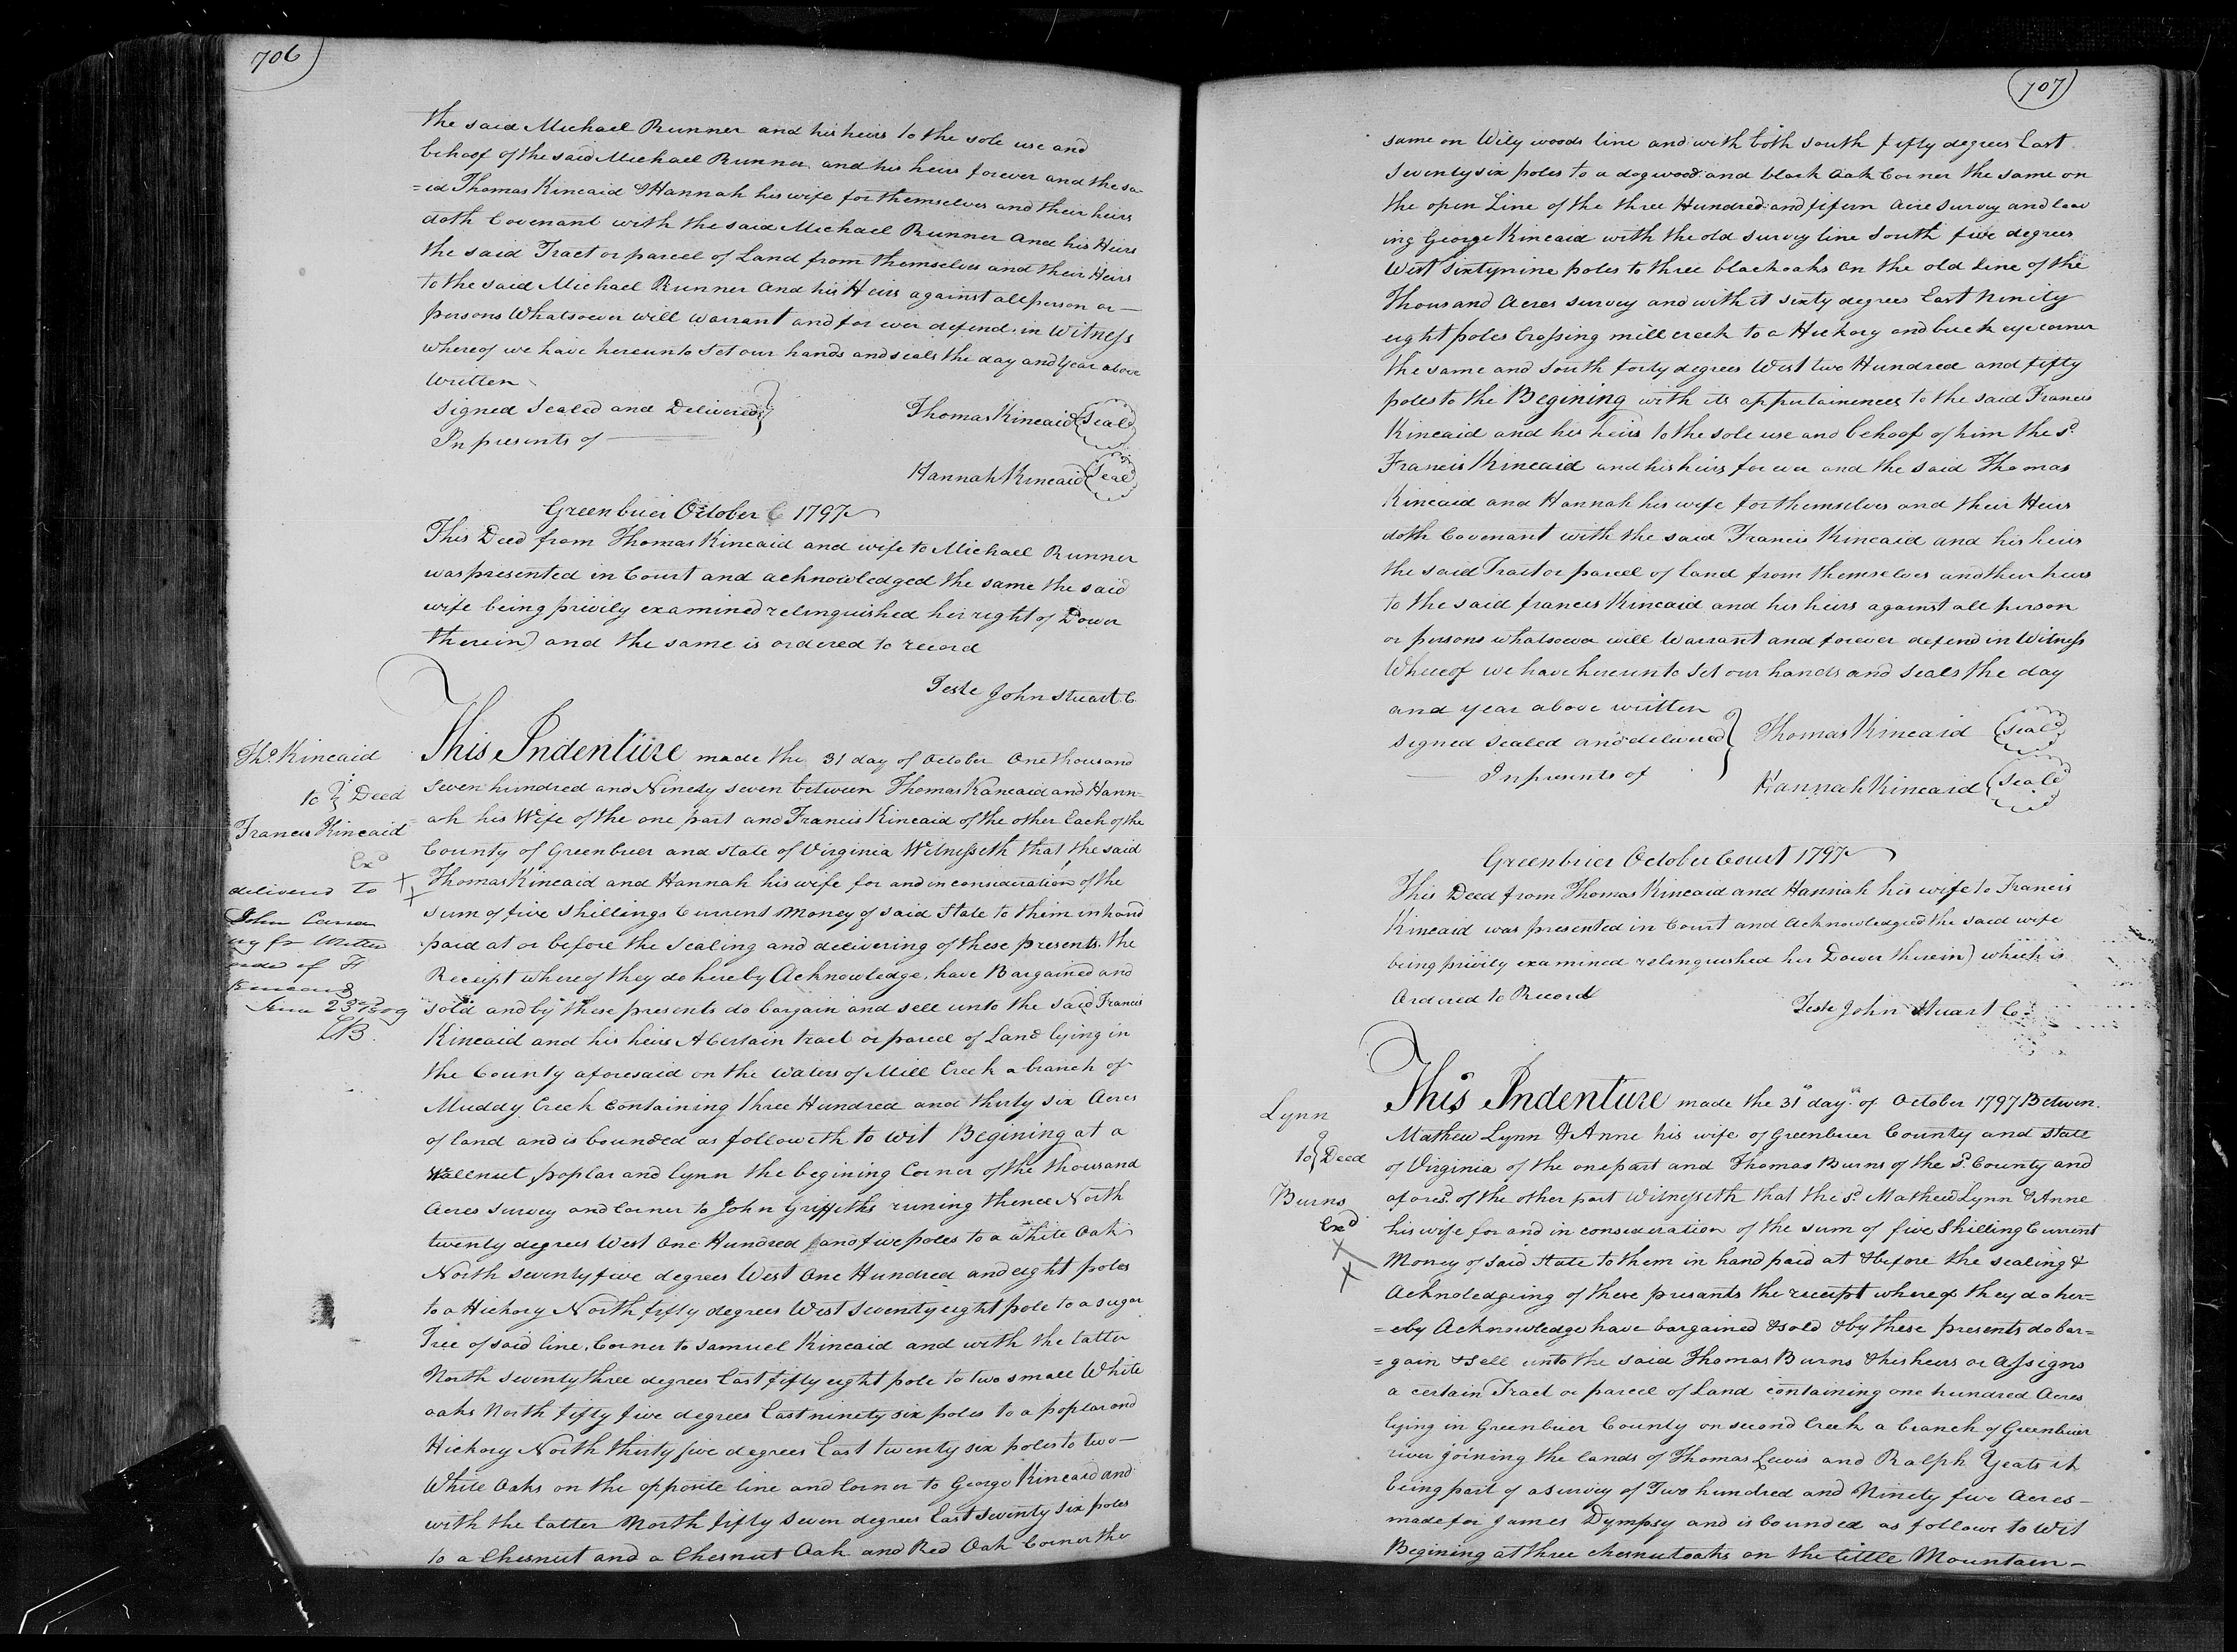 706
the said Michael Runner and his heirs to the sole use and
behoof of the said Michael Runner and his heirs forever and the sa-
=id Thomas Kincaid & Hannah his wife for themselves and their heirs
doth Covenant with the said Michael Runner and his Heirs
the said Tract or parcel of Land from themselves and their Heirs
to the said Michael Runner and his Heirs against all person or —
persons Whatsoever will warrant and for ever defend, in Witness
whereof we have hereunto Set our hands and seals the day and Year above
written
Signed Sealed and Delivered }
In presents of —
Thomas Kincaid (Seal)
Hannah Kincaid (Seal)
Greenbrier October C 1797
This Deed from Thomas Kincaid and wife to Michael Runner
was presented in Court and acknowledged the same the said
wife being privily examined relinquished her right of Dower
therein) and the same is ordered to record
Teste John Stuart C.
Tho. Kincaid
to } Deed
Francis Kincaid
Exd
delivered to
John
Kincaid
23rd 1809
This Indenture made the 31 day of October One thousand
Seven hundred and Ninety seven between Thomas Kancaid and Hann-
=ah his Wife of the one part and Francis Kincaid of the other Each of the
County of Greenbrier and State of Virginia Witnesseth that the said
Thomas Kincaid and Hannah his wife for and in consideration of the
sum of five Shillings Current Money of said State to them in hand
paid at or before the Sealing and delivering of these presents, the
Receipt whereof they do hereby Acknowledge, have Bargained and
sold and by these presents do bargain and sell unto the said Francis
Kincaid and his heirs A Certain tract or parcel of Land lying in
the County aforesaid on the waters of Mill Creek a branch of
Muddy Creek Containing three Hundred and thirty six Acres
of land and is bounded as followeth to wit Begining at a
Wallnut, poplar and lynn the begining Corner of the thousand
Acres Survey and Corner to John Griffeths runing thence North
twenty degrees West One Hundred and five poles to a White Oak
North seventy five degrees West One Hundred and eight poles
to a Hickory North fifty degrees West Seventy eight pole to a sugar
Tree of said line, Corner to Samuel Kincaid and with the latter
North seventy three degrees East fifty eight pole to two small White
oaks North fifty five degrees East ninety six poles to a poplar and
Hickory North thirty five degrees East twenty six poles to two —
White Oaks on the opposite line and Corner to George Kincaid and
with the latter North fifty seven degrees East seventy six poles
to a Chesnut and a Chesnut Oak and Red Oak Corner the
707
same on Wily woods line and with both South fifty degrees East
Seventy six poles to a dogwood and black oak Corner the same on
the open Line of the three Hundred and fifern Acre survey and leav
ing George Kincaid with the old survey line South five degrees
West Sixty nine poles to three black oaks on the old line of the
Thousand Acres survey and with it sixty degrees East Ninety
eight poles Crossing mill creek to a Hickory and buck eye corner
the same and South forty degrees West two Hundred and fifty
poles to the Begining with its appurtainences to the said Francis
Kincaid and his heirs to the sole use and behoof of him the sd.
Francis Kincaid and his heirs for ever and the said Thomas
Kincaid and Hannah his wife for themselves and their Heirs
doth Covenant with the said Francis Kincaid and his heirs
the said Tract or parcel of land from themselves and their heirs
to the said francis Kincaid and his heirs against all person
or persons whatsoever will Warrant and forever defend in Witness
Whereof we have hereunto Set our hands and Seals the day
and year above written
Signed Sealed and delivered }
— In presents of
Thomas Kincaid (Seal)
Hannah Kincaid (Seal)
Greenbrier October Court 1797
This Deed from Thomas Kincaid and Hannah his wife to Francis
Kincaid was presented in Court and Acknowledged the said wife
being privily examined relinquished her Dower therein) which is
Ordered to Record
Teste John Stuart C.
Lynn
to } Deed
Burns
Exd
This Indenture made the 31 day of October 1797 Between
Mathew Lynn & Anne his wife of Greenbrier County and State
of Virginia of the one part and Thomas Burns of the sd. County and
aforesd. of the other part Witnesseth that the sd. Mathew Lynn & Anne
his wife for and in consideration of the sum of five Shilling Current
Money of said State to them in hand paid at & before the sealing &
Acknoledging of these presants the receipt whereof they do her=
=eby Acknowledge have bargained & sold & by these presents do bar=
=gain & sell unto the said Thomas Burns & his heirs or Assigns
a certain Tract or parcel of Land containing one hundred Acres
lying in Greenbrier County on second Creek a branch of Greenbrier
river joining the lands of Thomas Lewis and Ralph Yeats it
being part of a survey of Two hundred and Ninety five Acres —
made for James Dympsy and is bounded as follows to Wit
Begining at three chesnut oaks on the little Mountain —